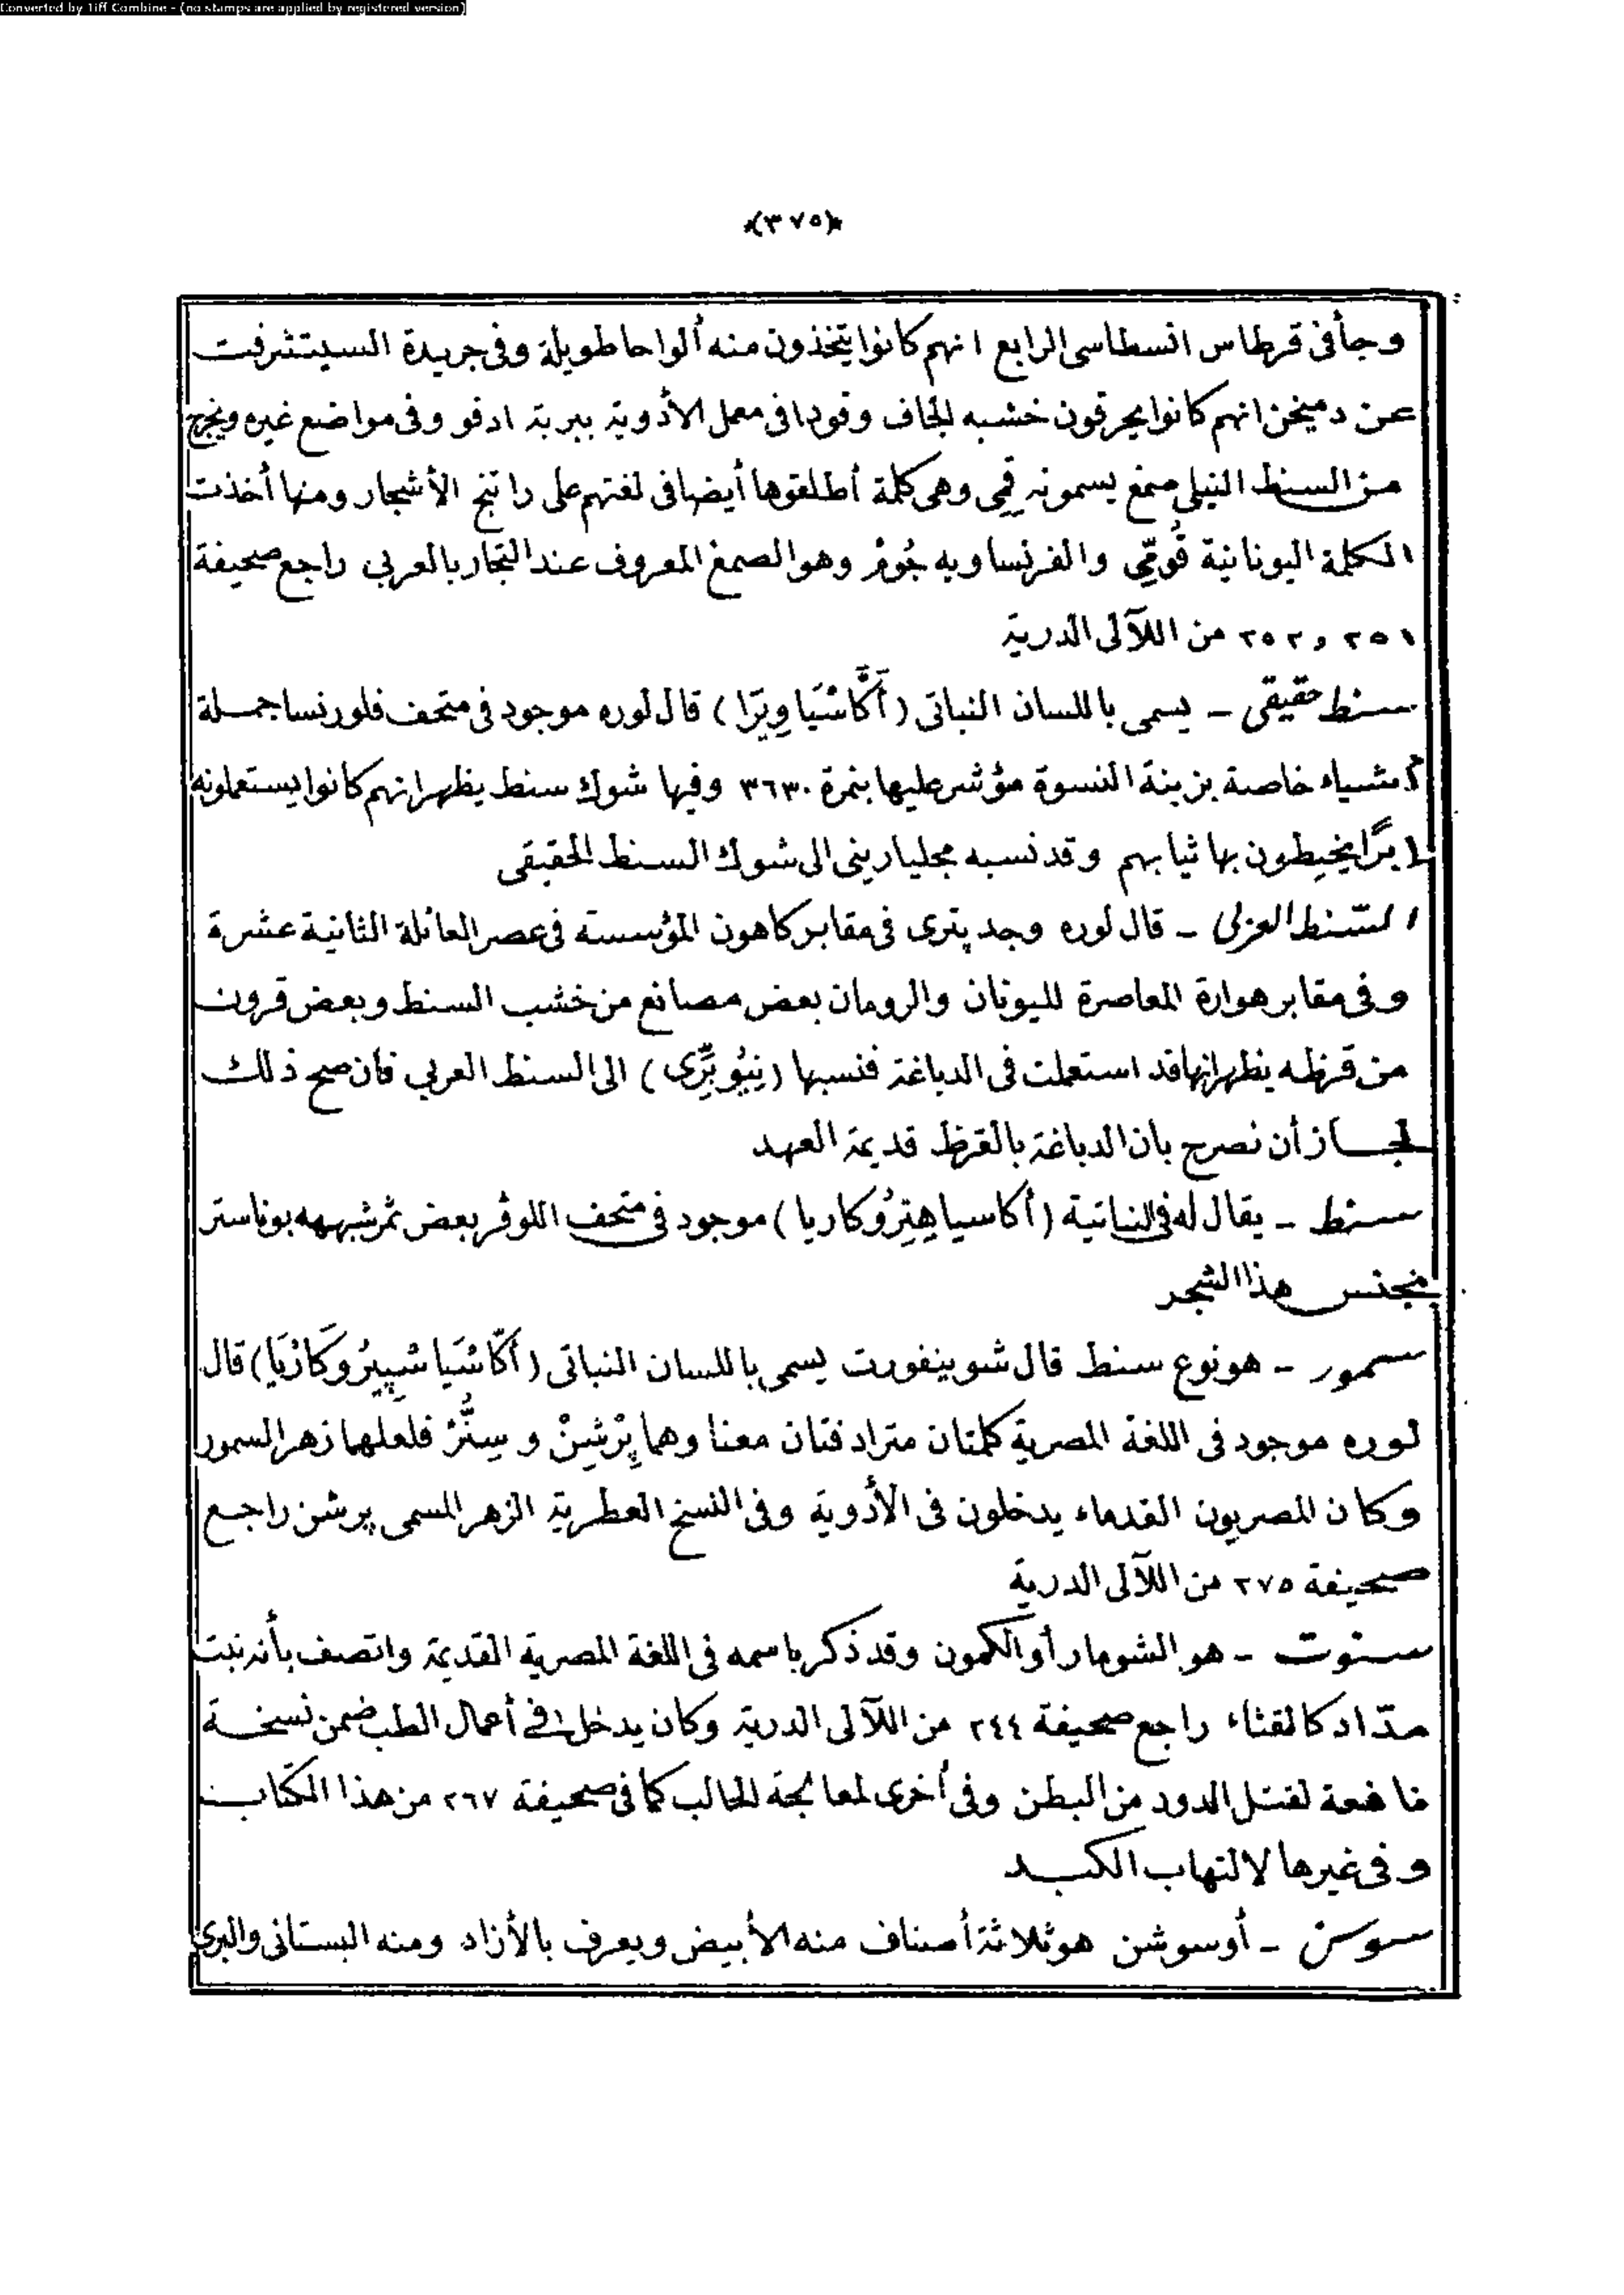 Converted by Tiff Combine - (no stamps are applied by registered version)
﴿٣٧٥﴾
وجأفى قرطاس انسطاسى الرابع انهم كانوا يتخذون منه ألواحا طويلة وفى جريدة السيتشرفت
عن دميخن انهم كانوا يحرقون خشبه الجاف وقودا فى معمل الأدوية ببربة ادفو وفى مواضع غيره ويخرج
من السنط النيلى صمغ يسمونه قمِى وهى كلمة أطلقوها أيضا فى لغتهم على راتنج الأشجار ومنها أخذت
الكلمة اليونانية قُومِّى والفرنساويه جُومْ وهو الصمغ المعروف عند التجار بالعربى راجع صحيفة
٢٥١ و ٢٥٢ من اللآلى الدرية
سنط حقيقى - يسمى باللسان النباتى (أَكَّاسْيَا وِيرَا) قال لوره موجود فى متحف فلورنسا جملة
أشياء خاصة بزينة النسوة مؤشر عليها بنمرة ٣٦٣٠ وفيها شوك سنط يظهر انهم كانوا يستعملونه
إبرًا يخيطون بها ثيابهم وقد نسبه مجليارينى الى شوك السنط الحقيقى
السنط العربى - قال لوره وجد پترى فى مقابر كاهون المؤسسة فى عصر العائلة الثانية عشرة
وفى مقابر هوارة المعاصرة لليونان والرومان بعض مصانع من خشب السنط وبعض قرون
من قرظه يظهر انها قد استعملت فى الدباغة فنسبها (نِيُو بِرِّى) الى السنط العربى فان صح ذلك
لجاز أن نصرح بان الدباغة بالقرظ قديمة العهد
سنط - يقال له فى النباتية (أكاسيا هِتِرُوكاريا) موجود فى متحف اللوڤر بعض ثمر شبهه بوناستر
بجنس هذا الشجر
سمور - هو نوع سنط قال شوينفورت يسمى باللسان النباتى (أَكَّاسْيَا سْپِيرُوكَارْپَا) قال
لوره موجود فى اللغة المصرية كلمتان مترادفتان معنا وهما پِرْشِنْ و سِنَّرْ فلعلهما زهر السمور
وكان المصريون القدماء يدخلون فى الأدوية وفى النسخ العطرية الزهر المسمى پرشن راجع
صحيفة ٢٧٥ من اللآلى الدرية
سنوت - هو الشومار أو الكمون وقد ذكر باسمه فى اللغة المصرية القديمة واتصف بأنه نبت
مدّاد كالقثاء راجع صحيفة ٢٤٤ من اللآلى الدرية وكان يدخل فى أعمال الطب ضمن نسخة
نافعة لقتل الدود من البطن وفى أخرى لمعالجة الحالب كما فى صحيفة ٢٦٧ من هذا الكتاب
وفى غيرها لالتهاب الكبد
سوسن - أو سوشن هو ثلاثة أصناف منه الأبيض ويعرف بالأزاد ومنه البستانى والبرى